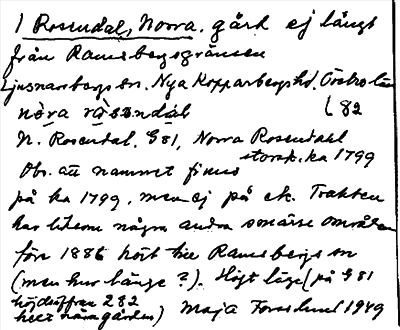 1 Rosendal, Norra. gård ej långt
från Ramsbergsgränsen
Ljusnarsbergs sn. Nya Kopparbergs hd. Örebro län
nòra ròsəndàl
L 82
N. Rosendal, G81, Norra Rosendahl
storsk. ka 1799
Obs. att namnet finns
på ka 1799, men ej på ek. Trakten
har liksom några andra smärre områden
före 1886 hört till Ramsbergs sn
(men hur länge?). Högt läge (på G81
höjdsiffran 282
helt nära gården) Maja Forsslund 1949